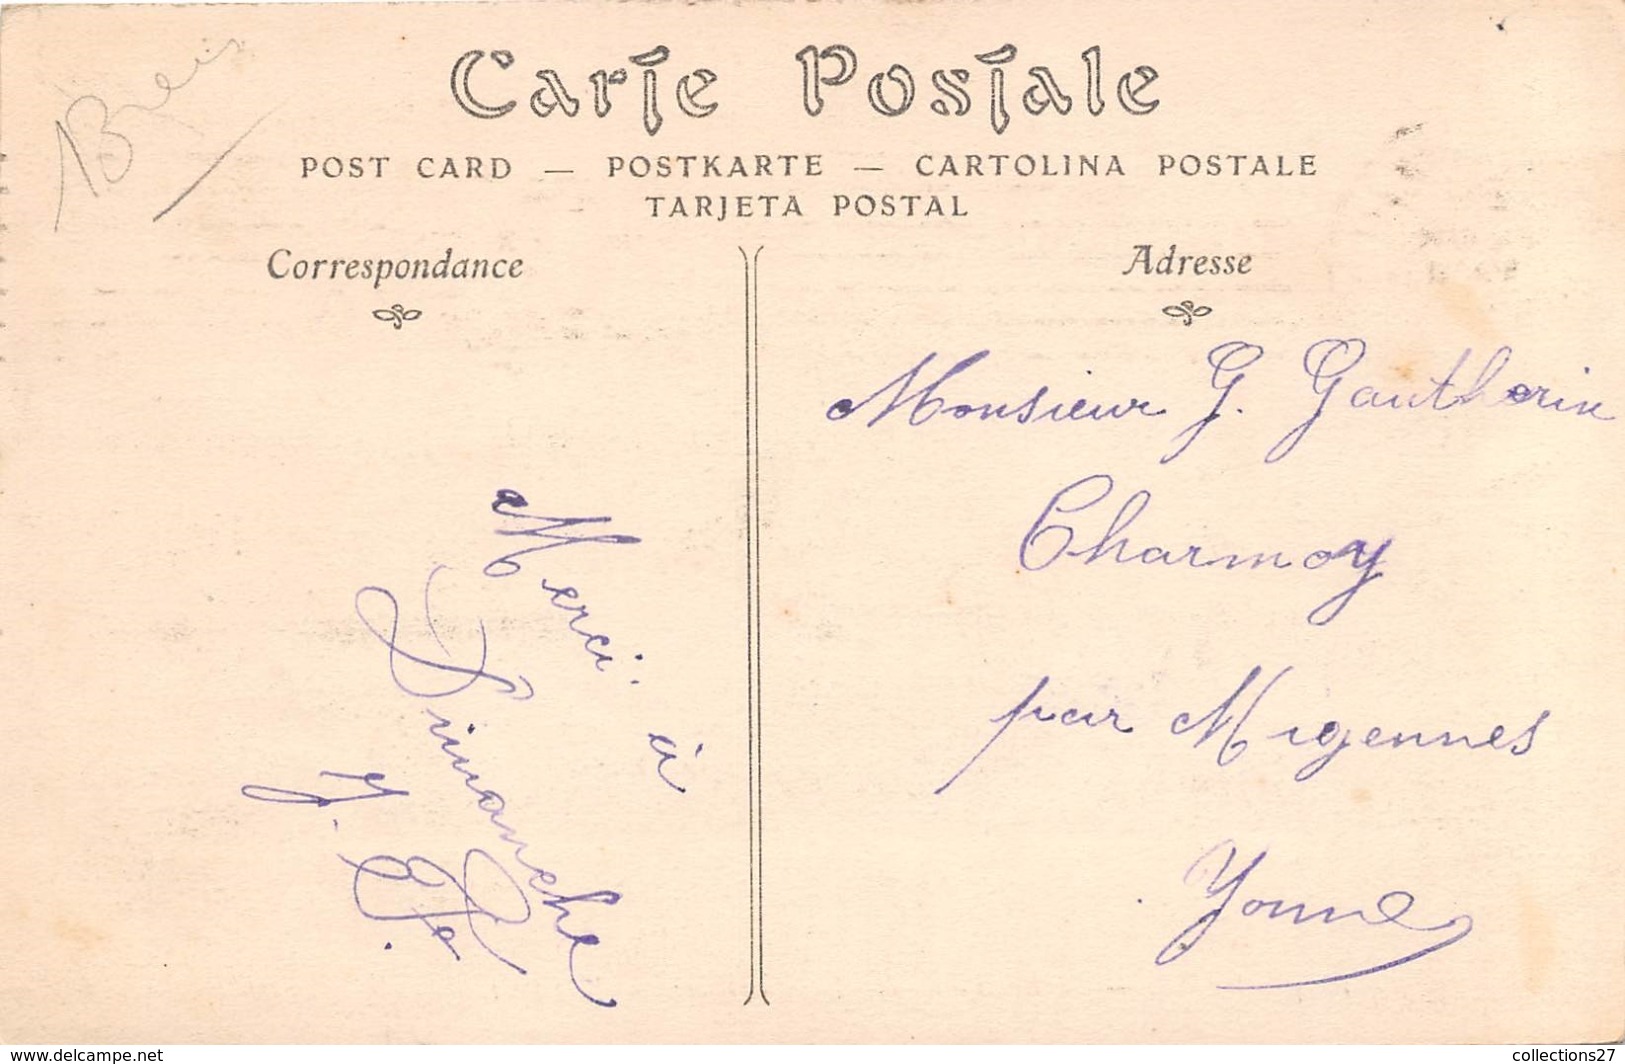 Carte Postale
POST CARD — POSTKARTE — CARTOLINA POSTALE
TARJETA POSTAL
Correspondance
Adresse
Merci. à
Dimanche
Monsieur G. Gautherin
Charmoy
par Migennes
Yonne
www.delcampe.net
collections27